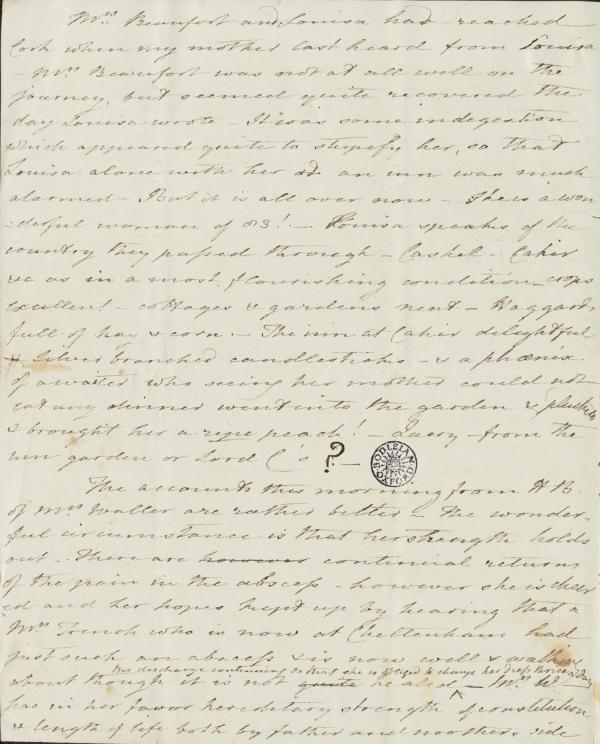 Mrs Beaufort and Louisa had reached
Cork when my mother last heard from Louisa
- Mrs Beaufort was not at all well on the
journey, but seemed quite recovered the
day Louisa wrote - It was some indigestion
which appeared quite to stupefy her, so that
Louisa alone with her at an inn was much
alarmed - But it is all over now - She is a won
-derful woman of 83! - Louisa speaks of the
country they passed through - Cashel - Cahir
&c as in a most flourishing condition - crops
excellent - cottages & gardens neat - Haggards
full of hay & corn. - The inn at Cahir delightful
& silver branched candlesticks - & a phœnix
of a waiter who seeing her mother could not
eat any dinner went into the garden & plucked
& brought her a ripe peach! - Query - from the
inn garden or Lord C s ? -
BODLEIAN
OXFORD
The accounts this morning from H B.
of Mrs Waller are rather better - The wonder-
ful circumstance is that her strength holds
out - There are however continual returns
of the pain in the abscess - however she is cheer
ed and her hopes kept up by hearing that a
Mrs Trench who is now at Cheltenham had
just such an abscess & is now well & walking
the discharge continuing so that she is obliged to change her dress thrice a day
about though it is not quite healed - Mrs W.
has in her favor hereditary strength of constitution
& length of life both by father and mothers side